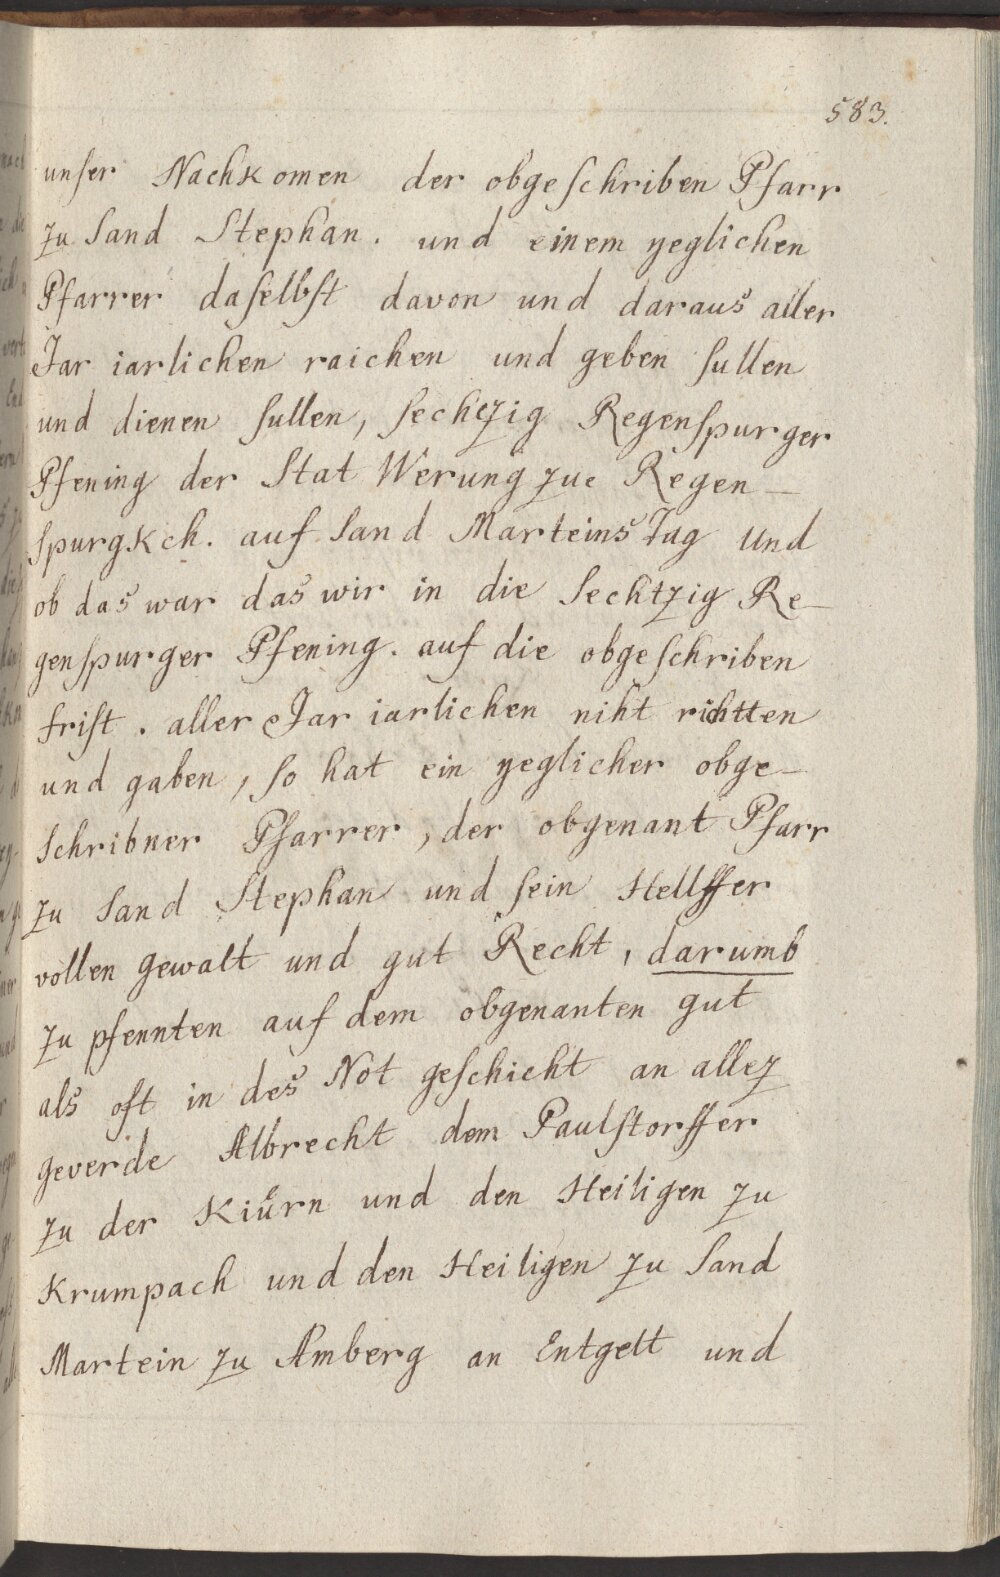 583.
unser Nachkomen der obgeschriben Pfarr
zu Sand Stephan. und einem yeglichen
Pfarrer daselbst davon und daraus aller
Jar iarlichen raichen und geben sullen
und dienen sullen, sechczig Regenspurger
Pfening der Stat Werung zue Regen-
spurgkch. auf Sand Marteins Tag und
ob das war das wir in die Sechtzig Re-
genspurger Pfening. auf die obgeschriben
frist. aller Jar iarlichen niht richtten
und gaben, so hat ein yeglicher obge-
schribner Pfarrer, der obgenant Pfarr
zu Sand Stephan und sein Hellffer
vollen gewalt und gut Recht, darumb
zu pfennten auf dem obgenanten gut
als oft in des Not geschicht an allez
geverde Albrecht dem Paulstorffer
zu der Kiürn und den Heiligen zu
Krumpach und den Heiligen zu Sand
Martein zu Amberg an Entgelt und